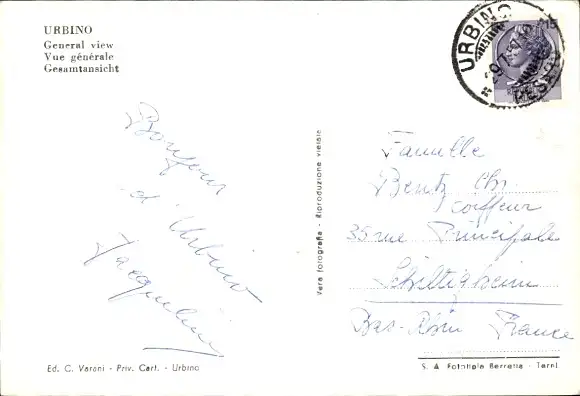 URBINO
General view
Vue générale
Gesamtansicht
Bonjour
d'Urbino
Jacqueline
Vera fotografia - Riproduzione vietata
URBINO
PESARO
Famille
Bentz Chr.
coiffeur
35 rue Principale
Schiltigheim
Bas-Rhin France
Ed. C. Varani - Priv. Cart. - Urbino
S. A. Fototipia Berretta - Terni